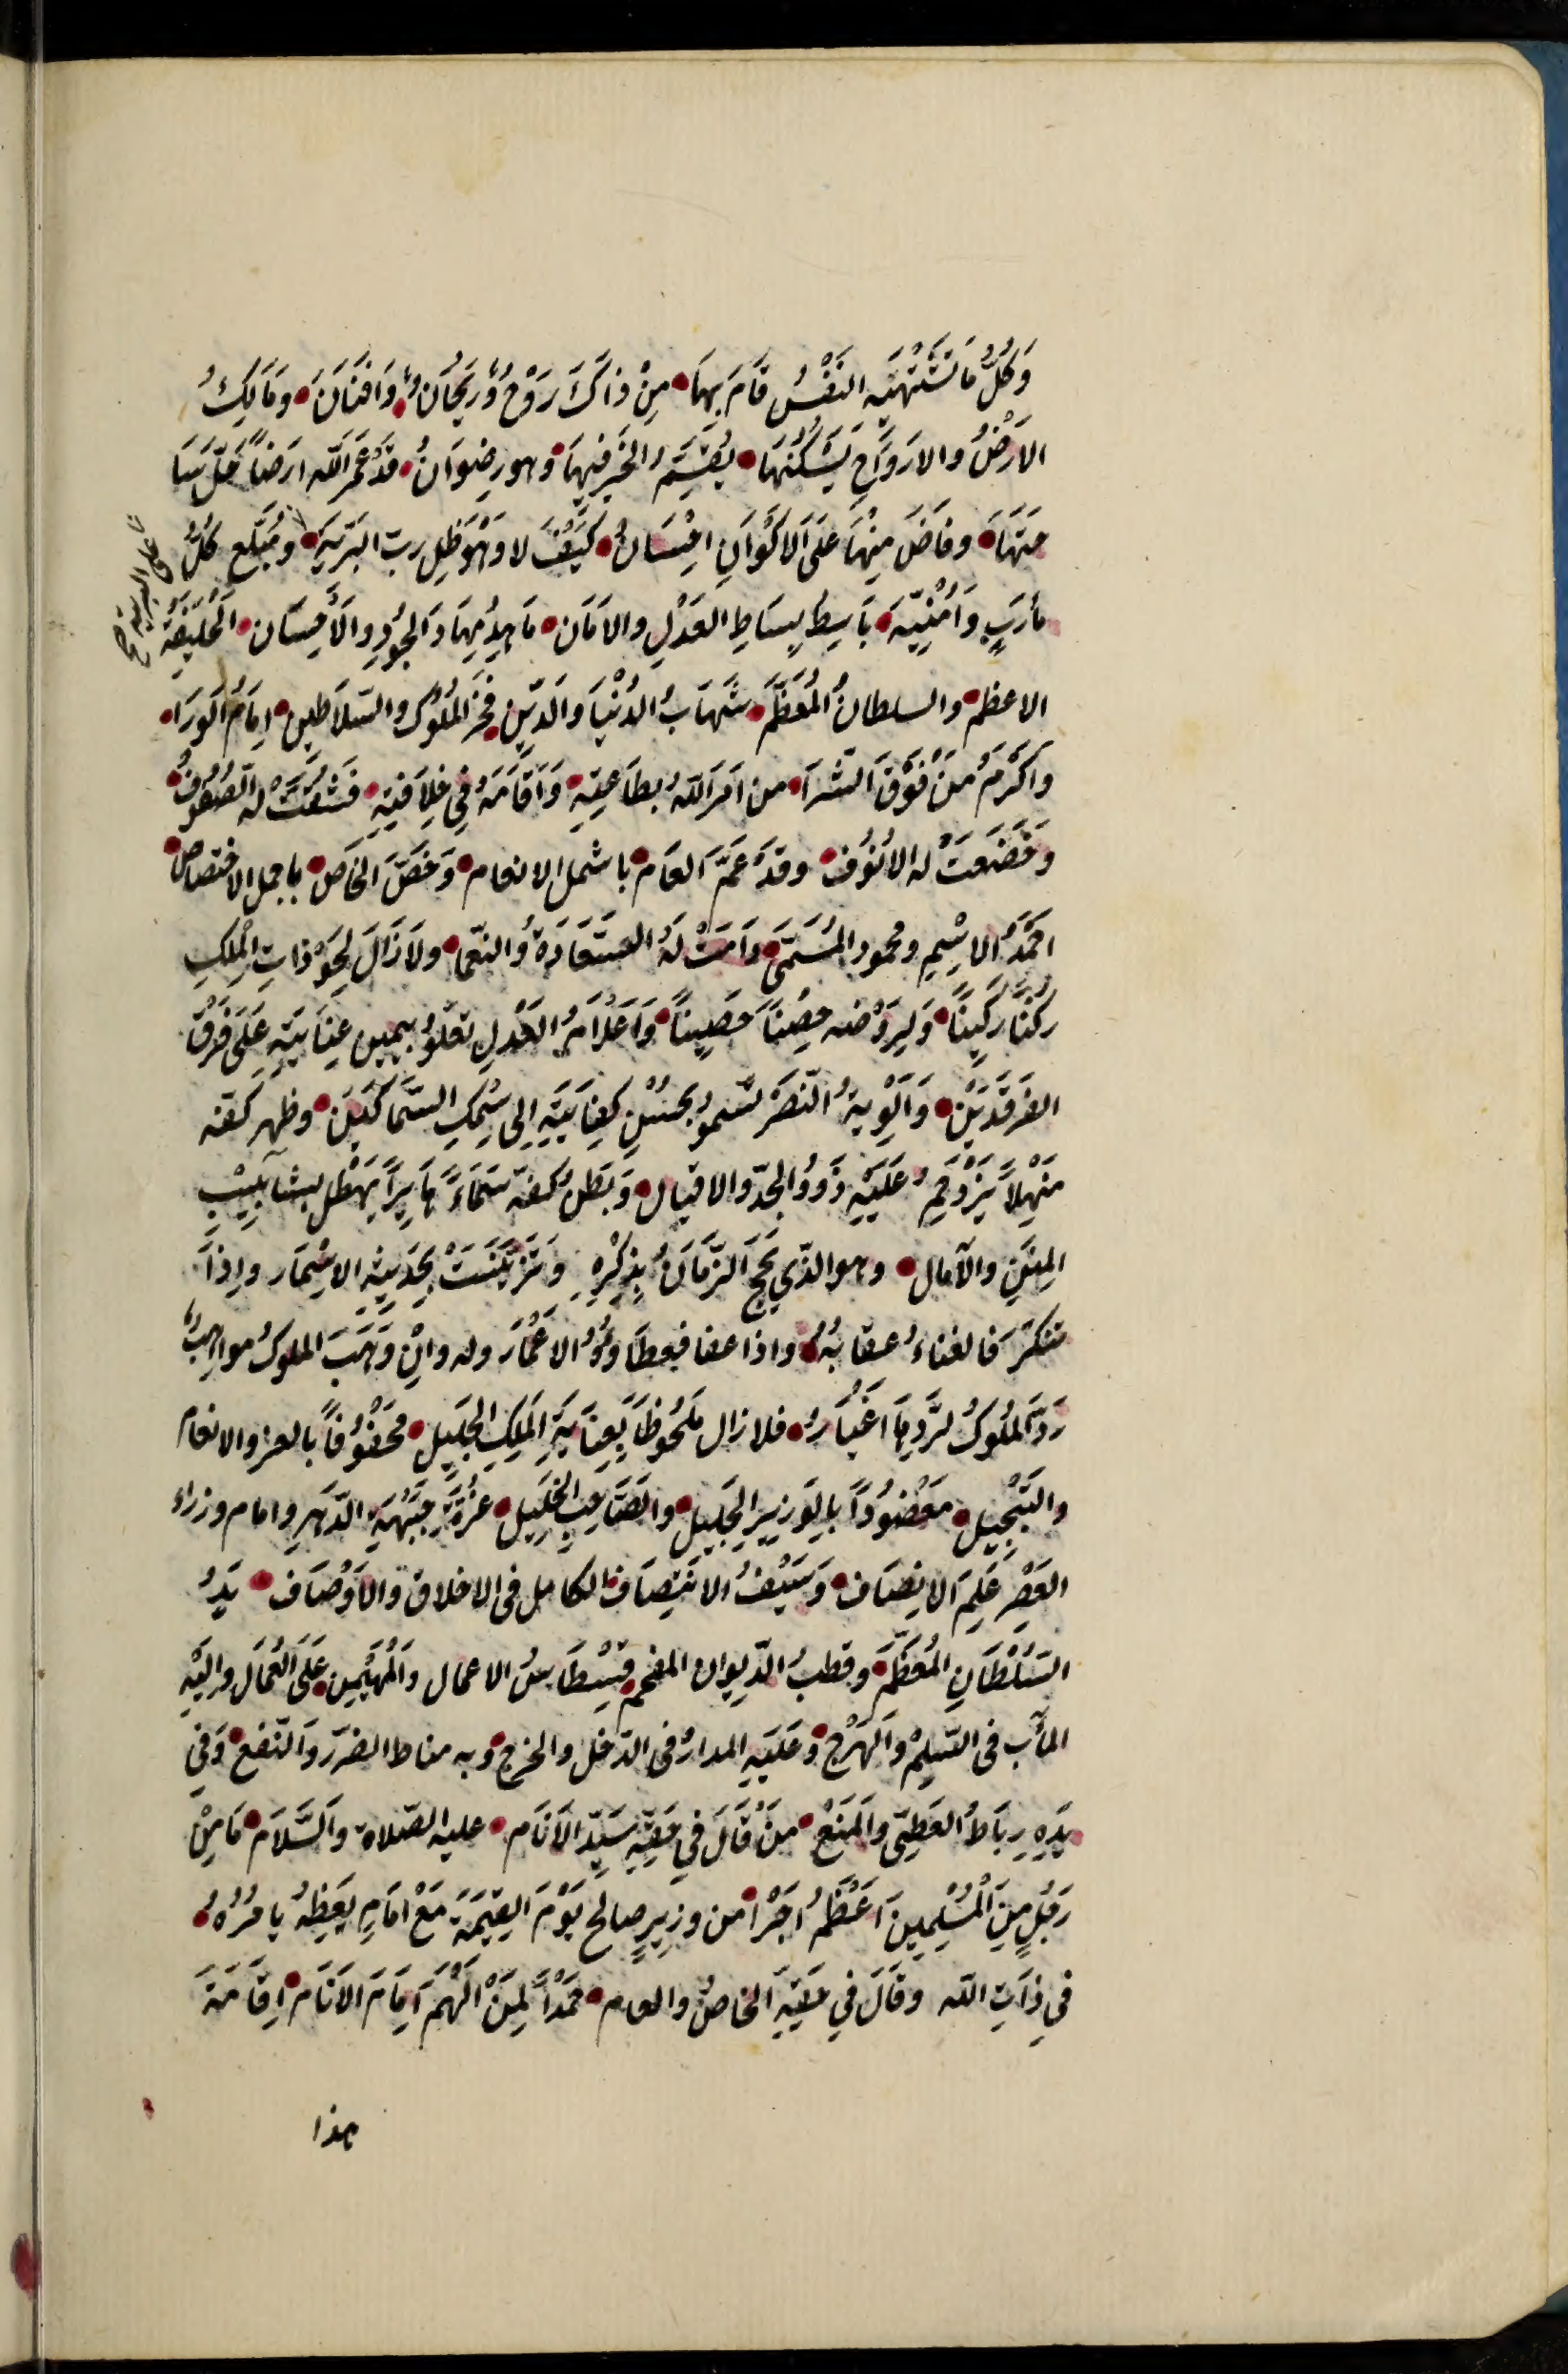 وَكُلُّ مَا تَشْتَهِيهِ النَفْسُ قَامَ بِهَا مِنْ ذَاكَ رَوْحٌ وَرَيْحَانٌ وَافْنَانَ وَمَالِكُ
الاَرْضُ وَالارْوَاحِ يَسْكُنُهَا يُقِيمُ الخَيرِ فِيهَا وهو رِضوَانُ قَدْ عَمَّرَ الله ارضاً حَلّ سَا
حتهَا وفاضَ مِنْهَا عَلَى الاَكْوَانِ احْسَانُ كَيْفَ لا وَهْوَ ظِل ربّ البَرِّيه وَمُبَلِّغ كُلّ
على البرية صح
مأرَبٍ وَاُمْنِيّه بَاسِطُ بِسَاطِ العَدْلِ والاَمَان مَاهِدُ مِهَادَ الجُودِ وَالاحْسَان الخَلِيفَة
الاعظم والسلطانُ المُعَظَّم شَهَابُ الدُنْيَا وَالدّين فَخَرَ المُلُوك والسّلاَطين اِمَامُ الوَرَا
وَاكْرَمُ مَنْ فَوْقَ الثَّرَا من اَمَرَ الله بطَاعتِهِ وَاَقَامَهُ فِي خِلاَفَتِهِ فَشُقَّتْ لَه الصُفُوفُ
وَخَضَعَتْ له الاُنُوُف وقَدْ عَمَّ العَام باشمل الانعام وَخَصَّ الخَاصّ باجمل الاختصاص
احمَدُ الاسْمِ ومحمود المُسَمّى دَامَتْ لَهُ السّعَادَةُ والنعّما ولاَزَالَ لِحَوْذاتِ المُلكِ
رُكْنًا رَكِينًا وَلِرَوْضه حِصْنًا حَصِينًا وَاَعْلاَمُ العَدْلِ تعْلُو بيمين عِنَايَتِهِ عَلَى فَرْق
الفَرقَدَيْن وَاَلْوِيةُ النّصْر تَسْمو بحُسْنِ كِفَايَتِهِ اِلى سِمْكِ السّمَاكَيْن وظهر كفّه
مَنْهِلاً يَزْدَحِمُ عَلَيْهِ ذَوُو الجَدّ والاقبال وَبَطنُ كفّه سَمَاءً هَامِراً يَهْطل بشآبيبِ
المِنَنِ والآمال وهو الذّي لَهجَ الزّمَانُ بِذِكْرِهِ وَتَزَيَّنَتْ بِحَدِيثِه الاسْمَار وإذَا
تنكَّرَ فَالفناءُ عقابُهُ واذا عفا فعطَاوُهُ الاعْمَار وله وانْ وَهَبَ الملوكُ مواهِبٌ
رَدّ المُلُوكُ لرَدّهَا اغْبَارُ فلا زال مَلْحُوظًا بِعِنَايَةِ المَلِكِ الجَلِيل مَحْفُوفاً بالعز والانعام
والتَبْجيل مَعْضُودًا بِالوَزيرِ الجَلِيل والصَاحِبِ الخَلِيل غُرَّةِ جَبْهَةِ الدّهر وامام وزراء
العَصْرِ عَلَمَ الانصَاف وَسَيْفُ الانتِصَاف الكامل في الاخلاق وَالاَوْصَاف يَدُ
السّلْطَانِ المُعَظَّم وقطبُ الدّيوان المفخم قِسْطَاسُ الاعمال والمُهَيْمِن عَلَى العُمَال واليْهِ
المآب في السِّلْمِ وَالهَرْج وَعَلَيْهِ المدارُ في الدّخل والخرج وبه مناط الضّرّ وَالنّفع وَفِي
يَدِهِ رِبَاطُ العَطِيّ وَالمَنْع مَنْ قَالَ فِي حَقِّهِ سَيِّدُ الاَنَام عليه الصّلاة وَالسَّلاَم مَا مِنْ
رَجُلٍ مِنَ الْمُسْلِمِينَ اَعْظَمُ اَجْرًا من وزِيرٍ صالحٍ يَوْمَ القِيمَةِ مَعْ امَامٍ يَعِظهُ يامُرُهُ
فِي ذَاتِ الله وقالَ فِي حَقِّهِ الخاصُ والعام حَمْدًا لِمَنْ اَلْهَمَ اِمَامَ الاَنَام اِقَامَةَ
هذا